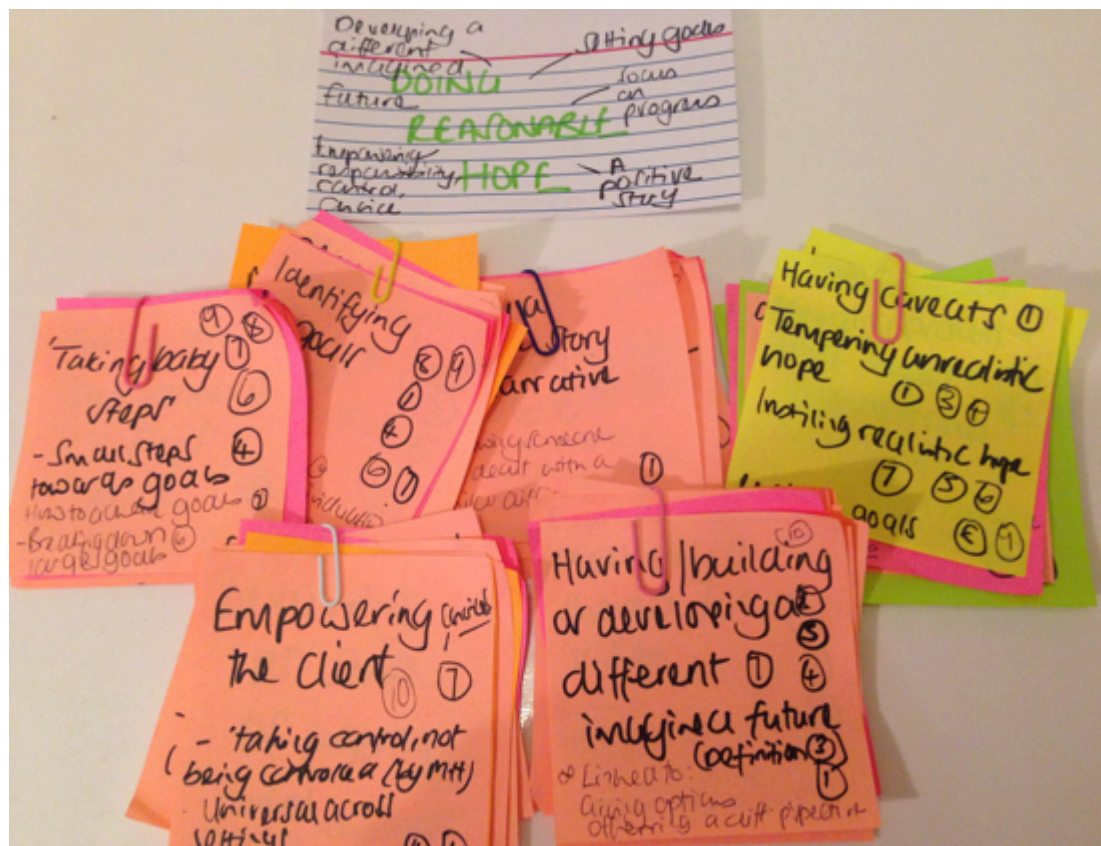 Developing a
different
imagined
future
setting goals
DOING
focus
on
progress
REASONABLE
Empowering
responsibility,
control,
choice
HOPE
A
positive
story
'Taking baby
steps'
9 8
7
6
- Small steps
towards goals
4
How to achieve goals 2
- Breaking down 6
larger goals
Identifying
goals
8 9
1
4
6 7
story
narrative
someone
dealt with a
1
Having caveats 1
Tempering unrealistic
hope
1 3 4
Instilling realistic hope
7 5 6
goals 8 9
Empowering
the Client
10 7
- 'taking control, not
being controlled (by MH)
- Universal across
settings
Having/building
or developing a
different 1 4
imagined future
(Definition) 3
1
10
2
5
Linked to:
Giving options
Offering a diff perspective